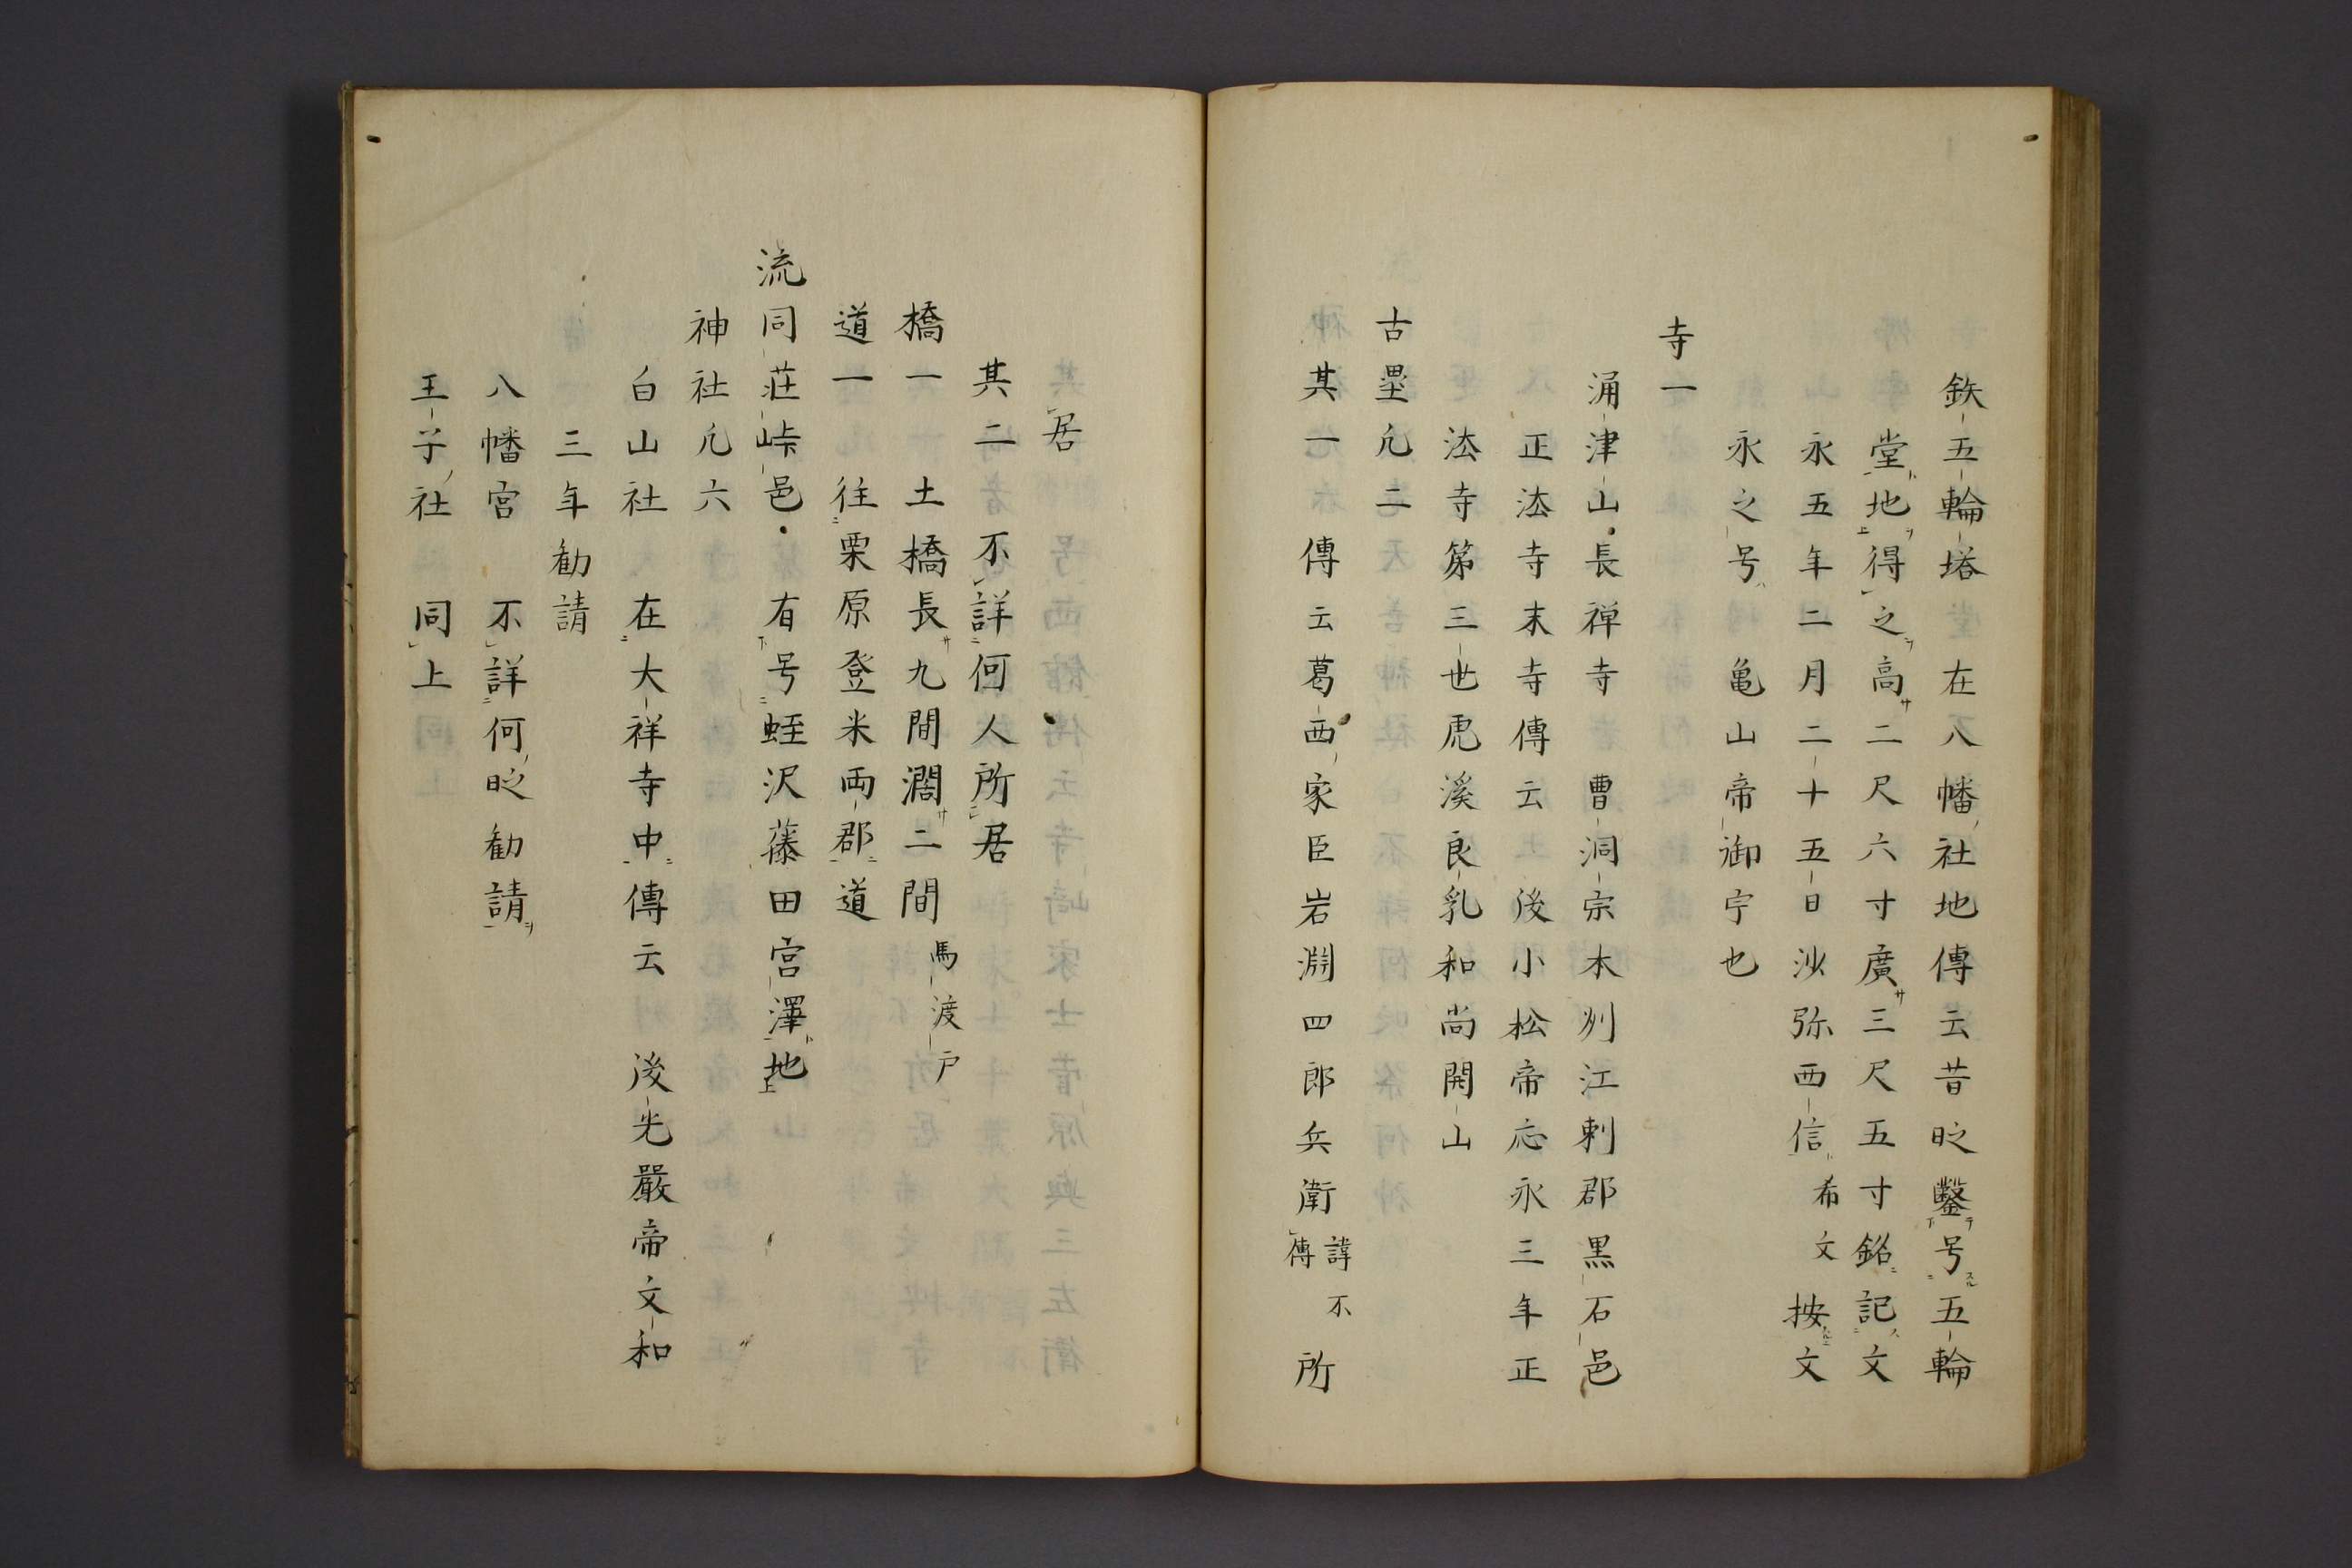 鉄五輪塔 在八幡社地傳云昔時鑿号五輪
堂地得之高二尺六寸廣三尺五寸銘記文
永五年二月二十五日沙弥西信希文按文
永之号亀山帝御宇也
寺一
涌津山長禅寺 曹洞宗本刕江刺郡黒石邑
正法寺末寺傳云 後小松帝応永三年正
法寺第三世虎溪良乳和尚開山
古壘凢二
其一 傳云葛西家臣岩淵四郎兵衛諱不傳所
居
其二 不詳何人所居
橋一 土橋長九間濶二間馬渡戸
道一 往栗原登米両郡道
流同荘峠邑 有号蛭沢藤田宮澤地
神社凢六
白山社 在大祥寺中傳云 後光嚴帝文和
三年勧請
八幡宮 不詳何時勧請
王子社 同上